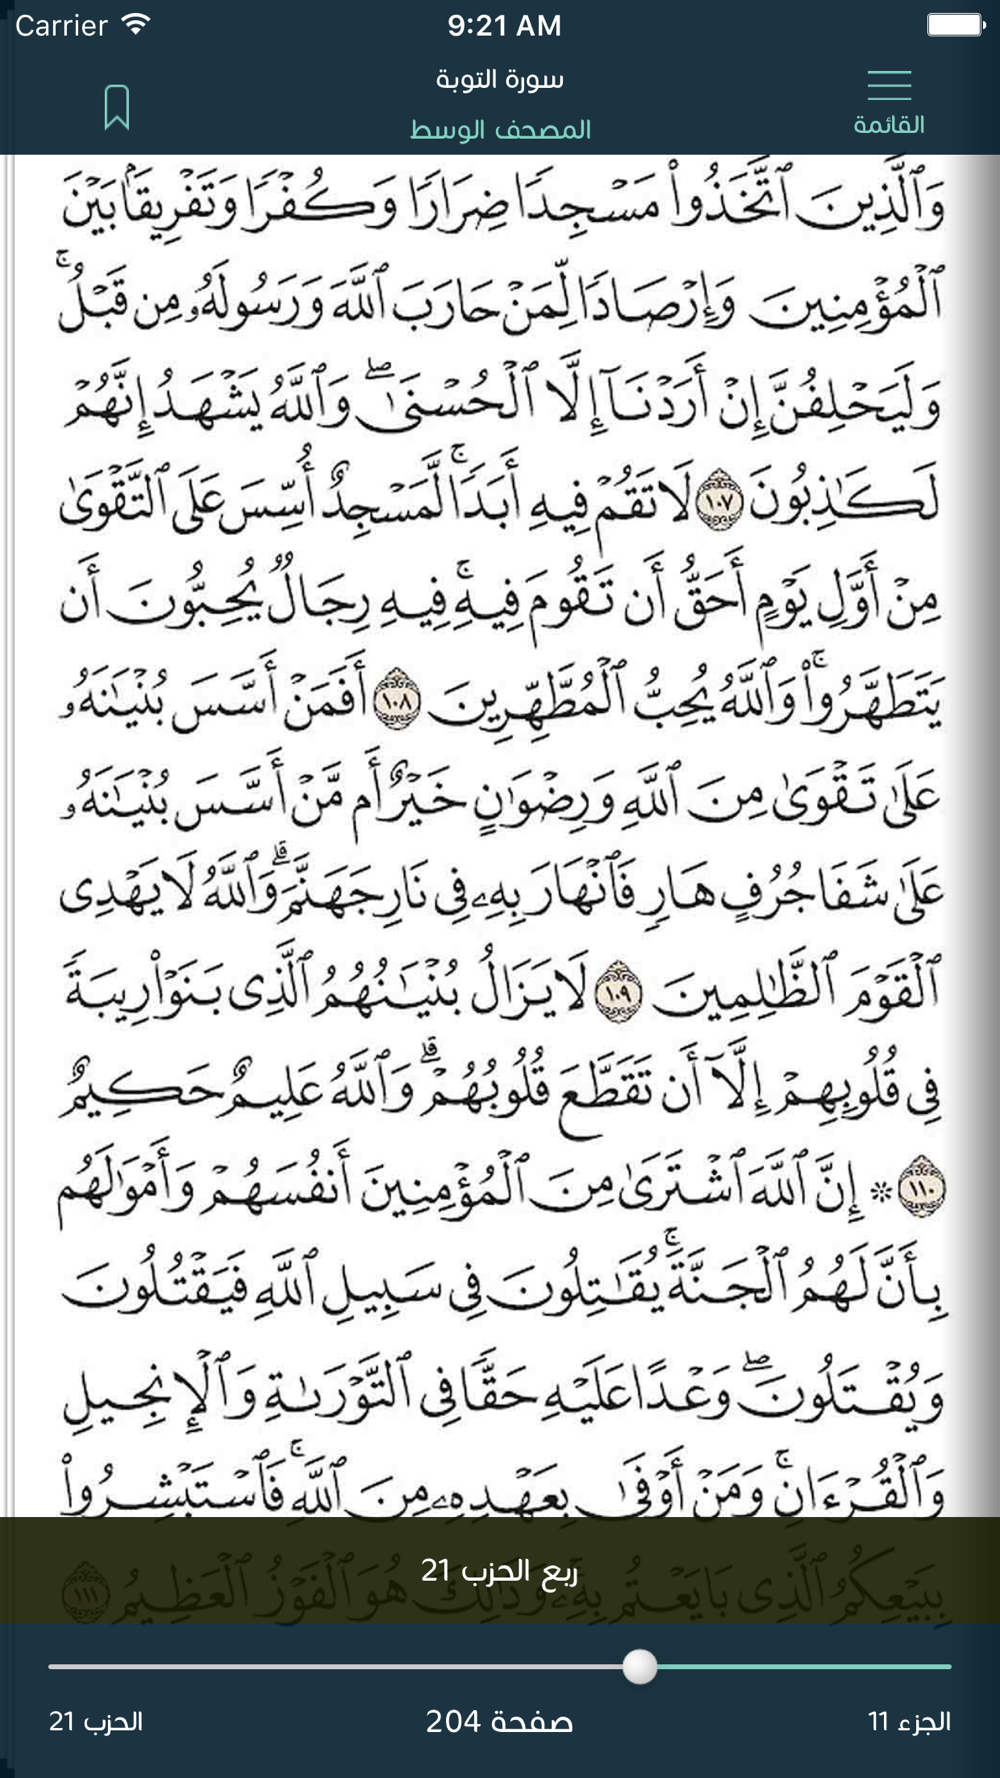 Carrier 9:21 AM
سورة التوبة
القائمة
المصحف الوسط
وَٱلَّذِينَ ٱتَّخَذُوا۟ مَسْجِدًا ضِرَارًا وَكُفْرًا وَتَفْرِيقًۢا بَيْنَ
ٱلْمُؤْمِنِينَ وَإِرْصَادًا لِّمَنْ حَارَبَ ٱللَّهَ وَرَسُولَهُۥ مِن قَبْلُ ۚ
وَلَيَحْلِفُنَّ إِنْ أَرَدْنَآ إِلَّا ٱلْحُسْنَىٰ ۖ وَٱللَّهُ يَشْهَدُ إِنَّهُمْ
لَكَـٰذِبُونَ ١٠٧ لَا تَقُمْ فِيهِ أَبَدًا ۚ لَّمَسْجِدٌ أُسِّسَ عَلَى ٱلتَّقْوَىٰ
مِنْ أَوَّلِ يَوْمٍ أَحَقُّ أَن تَقُومَ فِيهِ ۚ فِيهِ رِجَالٌ يُحِبُّونَ أَن
يَتَطَهَّرُوا۟ ۚ وَٱللَّهُ يُحِبُّ ٱلْمُطَّهِّرِينَ ١٠٨ أَفَمَنْ أَسَّسَ بُنْيَـٰنَهُۥ
عَلَىٰ تَقْوَىٰ مِنَ ٱللَّهِ وَرِضْوَٰنٍ خَيْرٌ أَم مَّنْ أَسَّسَ بُنْيَـٰنَهُۥ
عَلَىٰ شَفَا جُرُفٍ هَارٍ فَٱنْهَارَ بِهِۦ فِى نَارِ جَهَنَّمَ ۗ وَٱللَّهُ لَا يَهْدِى
ٱلْقَوْمَ ٱلظَّـٰلِمِينَ ١٠٩ لَا يَزَالُ بُنْيَـٰنُهُمُ ٱلَّذِى بَنَوْا۟ رِيبَةً
فِى قُلُوبِهِمْ إِلَّآ أَن تَقَطَّعَ قُلُوبُهُمْ ۗ وَٱللَّهُ عَلِيمٌ حَكِيمٌ
١١٠ ۞ إِنَّ ٱللَّهَ ٱشْتَرَىٰ مِنَ ٱلْمُؤْمِنِينَ أَنفُسَهُمْ وَأَمْوَٰلَهُم
بِأَنَّ لَهُمُ ٱلْجَنَّةَ ۚ يُقَـٰتِلُونَ فِى سَبِيلِ ٱللَّهِ فَيَقْتُلُونَ
وَيُقْتَلُونَ ۖ وَعْدًا عَلَيْهِ حَقًّا فِى ٱلتَّوْرَىٰةِ وَٱلْإِنجِيلِ
وَٱلْقُرْءَانِ ۚ وَمَنْ أَوْفَىٰ بِعَهْدِهِۦ مِنَ ٱللَّهِ ۚ فَٱسْتَبْشِرُوا۟
بِبَيْعِكُمُ ٱلَّذِى بَايَعْتُم بِهِۦ ۚ وَذَٰلِكَ هُوَ ٱلْفَوْزُ ٱلْعَظِيمُ ١١١
ربع الحزب 21
الجزء 11 صفحة 204 الحزب 21